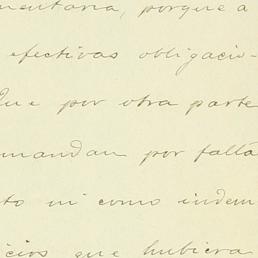 mentaria, porque a
efectivas obligacio-
que por otra parte
mandan por falta
to ni como indem
icios que hubiera